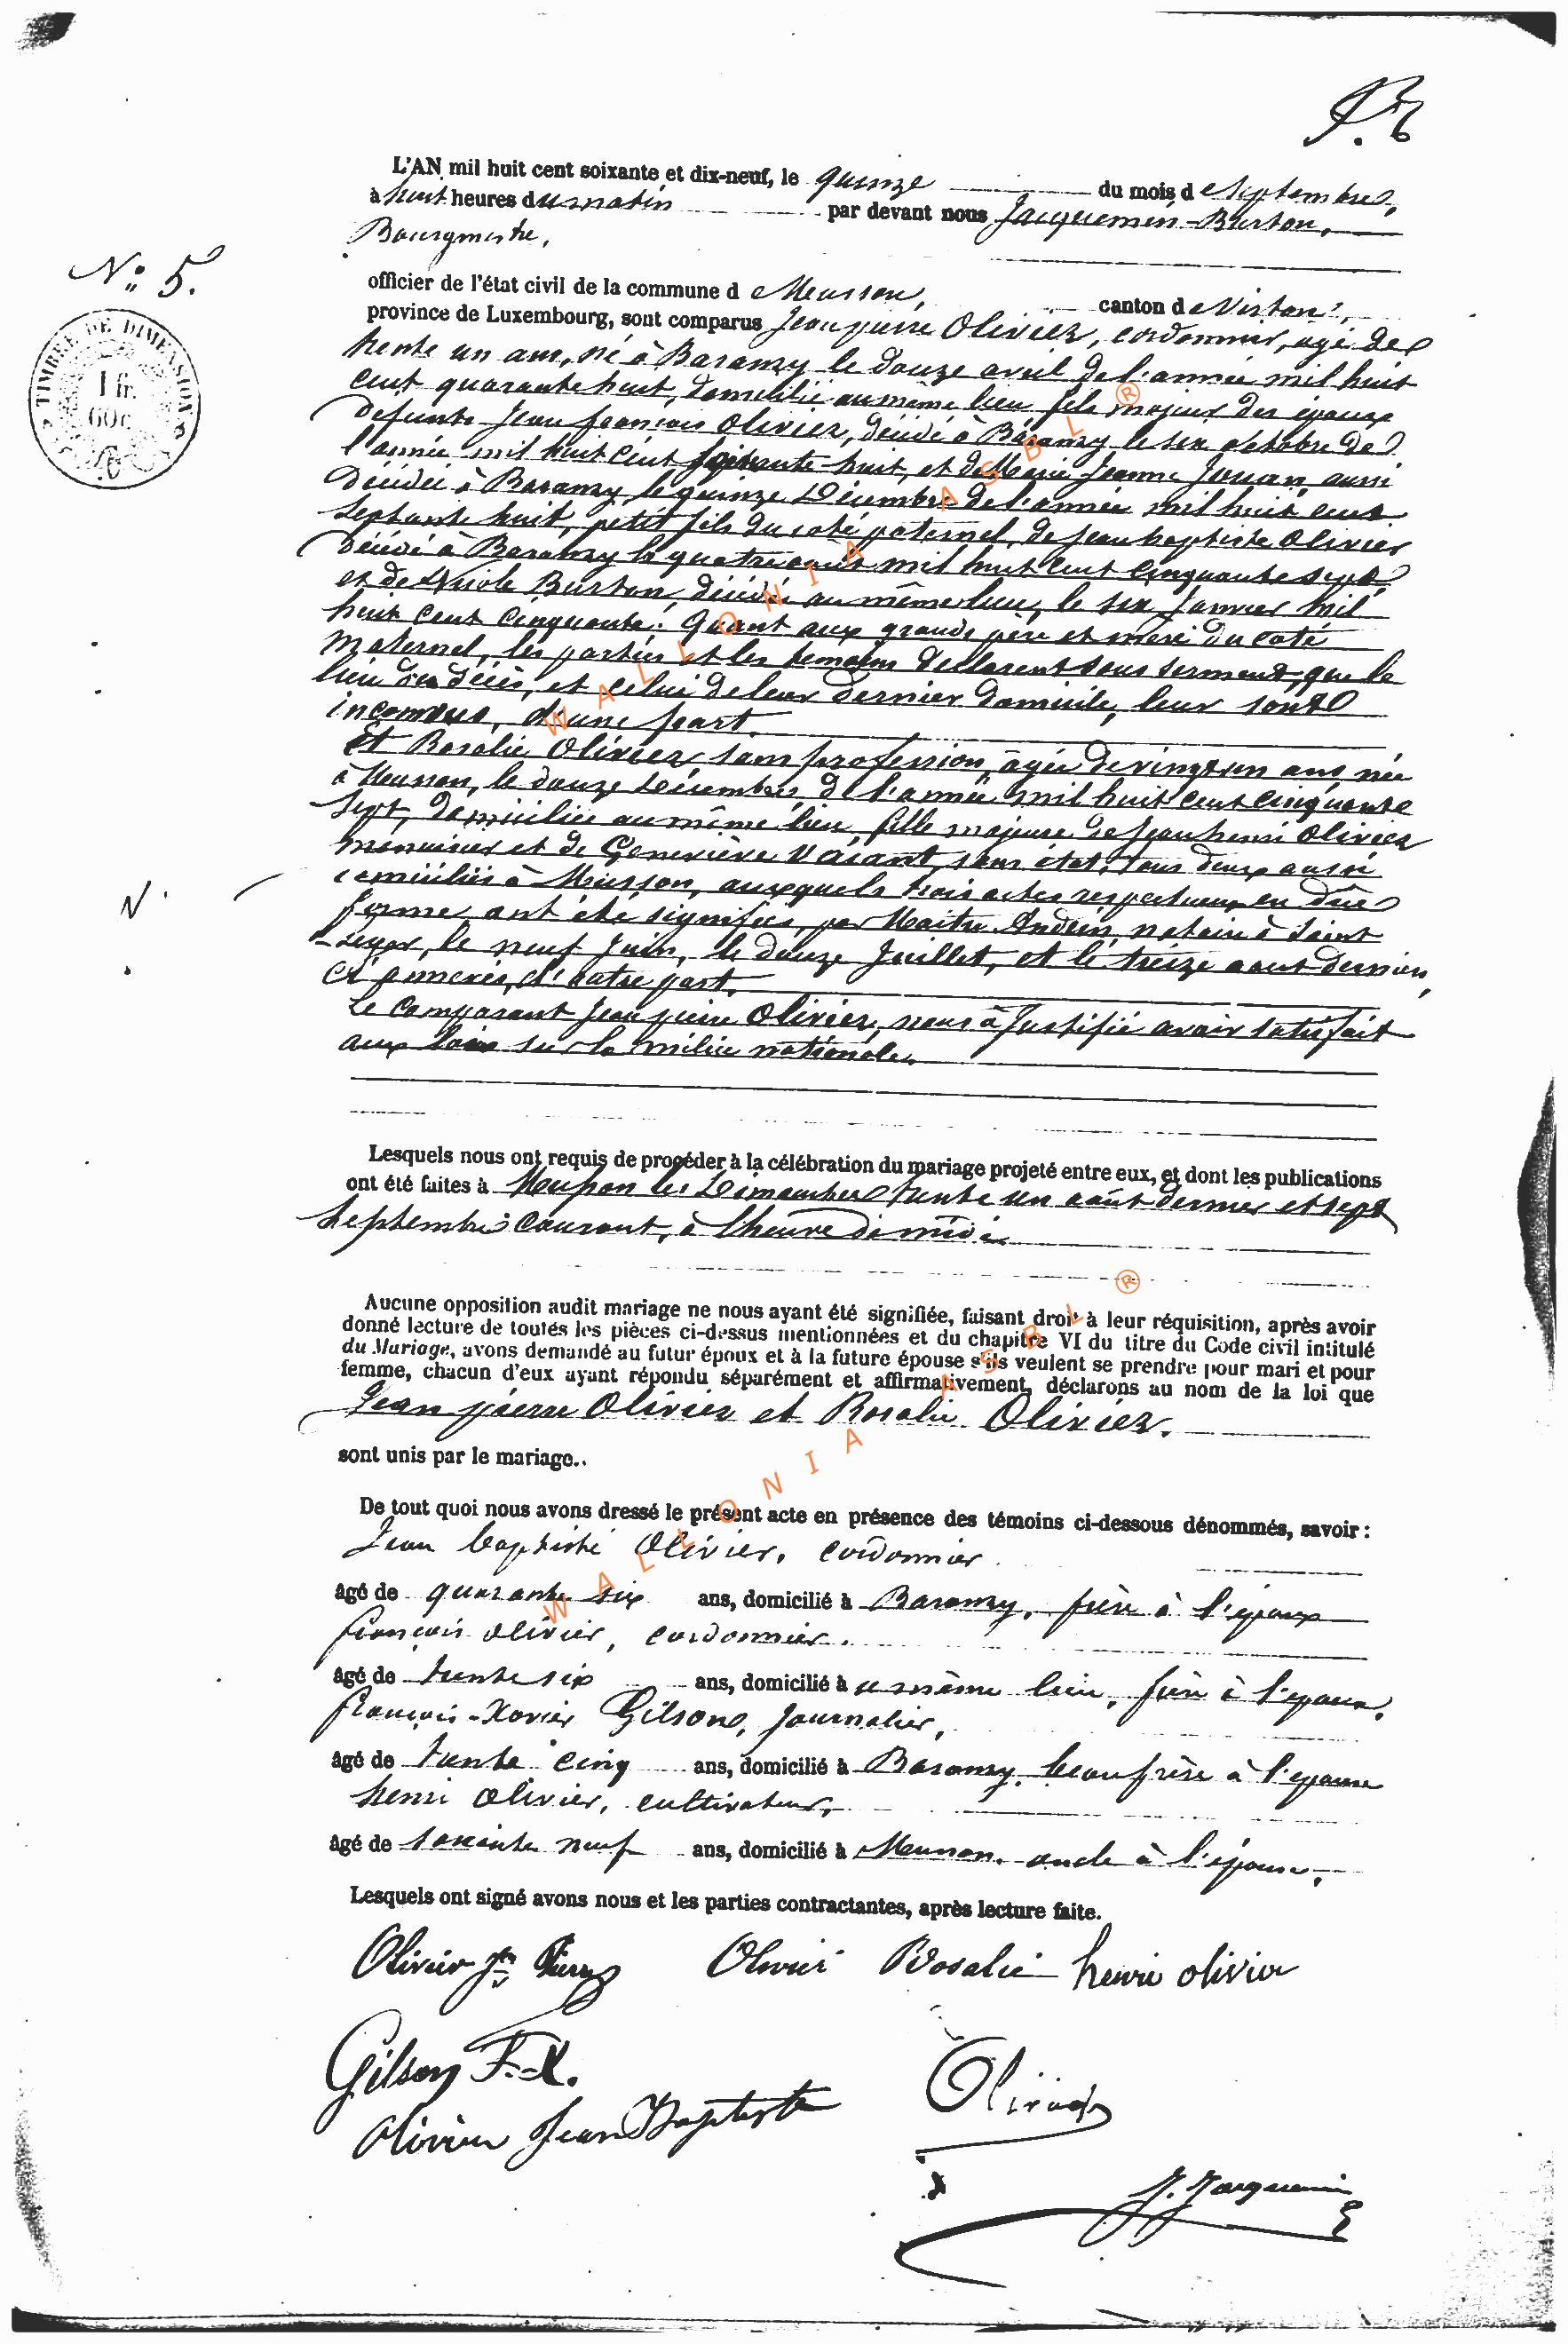 L'AN mil huit cent soixante et dix-neuf, le quinze du mois d e Septembre,
à huit heures d u matin par devant nous Jacquemin-Burton,
Bourgmestre,
N° 5.
officier de l'état civil de la commune d e Musson, canton d e Virton,
province de Luxembourg, sont comparus Jean pierre Olivier, cordonnier, âgé de
TIMBRE DE DIMENSION
1 fr.
60 c.
trente un ans, né à Baranzy le douze avril de l'année mil huit
cent quarante huit, domicilié au même lieu fils majeur des époux
défunts Jean françois Olivier, décédé à Baranzy le six octobre de
l'année mil huit cent huit, et de Marie Jeanne aussi
décédée à Baranzy le quinze Décembre de l'année mil huit cent
septante huit, petit fils du coté paternel, de Jean baptiste Olivier
décédé à Baranzy le quatre août mil huit cent cinquante sept
et de Nicole Burton, décédée au même lieu, le six Janvier mil
huit cent cinquante. Quant aux grands père et mère du coté
maternel, les parties et les temoins declarent sous serment, que le
lieu du décès, et celui de leur dernier domicile, leur sont
inconnus, d'une part.
Et Rosalie Olivier, sans profession, âgée de vingt un ans, née
à Musson, le douze Décembre de l'année mil huit cent cinquante
sept, domiciliée au même lieu, fille majeure de Jean henri Olivier
menuisier et de Geneviève sans état, tous deux aussi
domiciliés à Musson, auxquels trois actes respectueux en due
forme ont été signifiés, par Maitre notaire à Saint
-Léger, le neuf Juin, le douze Juillet, et le treize aout dernier,
ci annexés, d'autre part.
Le comparant Jean pierre Olivier, nous à Justifié avoir satisfait
aux lois sur la milice nationale.
Lesquels nous ont requis de procéder à la célébration du mariage projeté entre eux, et dont les publications
ont été faites à Musson les Dimanches trente un août dernier et sept
Septembre courant, à l'heure de midi.
Aucune opposition audit mariage ne nous ayant été signifiée, faisant droit à leur réquisition, après avoir
donné lecture de toutes les pièces ci-dessus mentionnées et du chapitre VI du titre du Code civil intitulé
du Mariage, avons demandé au futur époux et à la future épouse s'ils veulent se prendre pour mari et pour
femme, chacun d'eux ayant répondu séparément et affirmativement, déclarons au nom de la loi que
Jean pierre Olivier et Rosalie Olivier.
sont unis par le mariage..
De tout quoi nous avons dressé le présent acte en présence des témoins ci-dessous dénommés, savoir :
Jean baptiste Olivier, cordonnier
âgé de quarante six ans, domicilié à Baranzy, frère à l'époux
françois olivier, cordonnier.
âgé de trente six ans, domicilié à u même lieu, frère à l'époux,
françois-Xavier Gilson, Journalier,
âgé de trente cinq ans, domicilié à Baranzy, beau frère à l'époux
henri Olivier, cultivateur,
âgé de soixante neuf ans, domicilié à Musson, oncle à l'épouse.
Lesquels ont signé avons nous et les parties contractantes, après lecture faite.
Olivier Jn Pierre Olivier Rosalie henri olivier
Gilson F.-X. Olivier
Olivier Jean Baptiste
J. Jacquemin
WALLONIA ASBL ®
WALLONIA ASBL ®